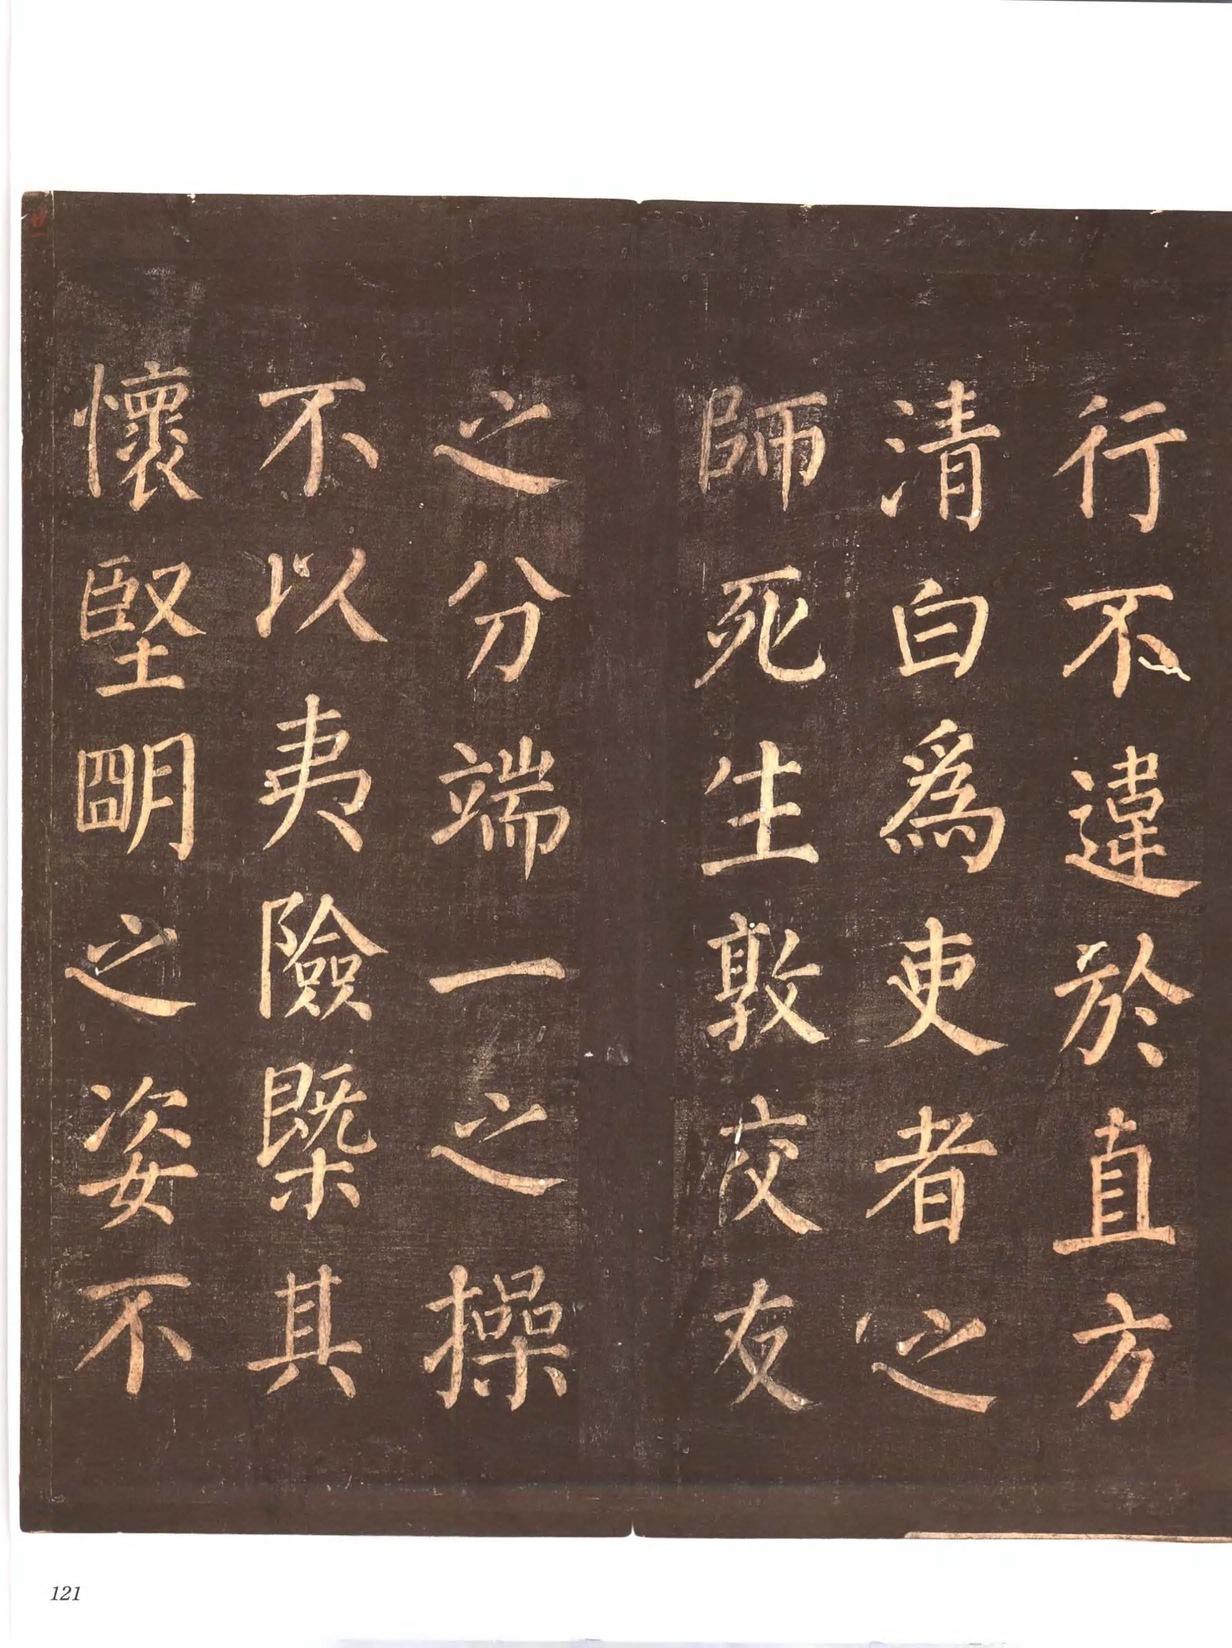 行不違於直方
清白為吏者之
師死生敦交友
之分端一之操
不以夷險槩其
懷堅明之姿不
121